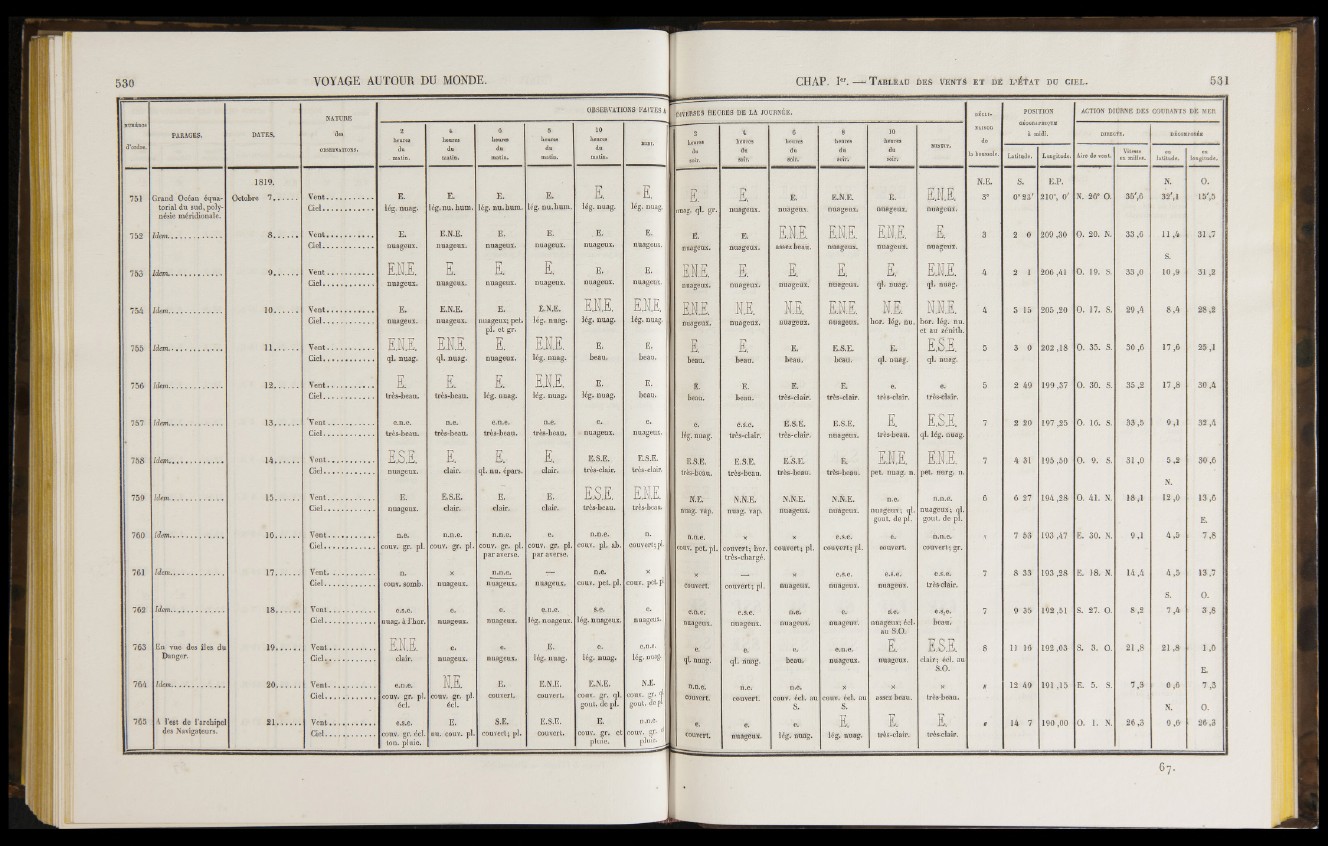 530 VOYAGE AUTOUR DU MONDE.
NUMÉROS d'ordre. PARAGES. DATES. NATURE des OBSERVATIONS. OBSERVATIONS FAITES A
2 heures du matin. 4 heures du matin. 6 heures du matin. 8 heures du matin. 10 heures du matin. MIDI.
1819.
751 Grand Océan équa- Octobre 7...... Vent........... E. E. E. E. E. E.
torial du sud, poly- Ciel............ lég. nuag. lég. nu. hum. lég. nu. hum. lég. nu. hum. lég. nuag. lég. nuag.
nésie méridionale.
752 Idem............. 8...... Vent........... E. E.N.E. E. E. E. E.
Ciel............ nuageux. nuageux. nuageux. nuageux. nuageux. nuageux.
753 Idem............. 9...... Vent........... E.N.E. E. E. E. E. E.
Ciel............ nuageux. nuageux. nuageux. nuageux. nuageux. nuageux.
754 Idem............. 10...... Vent........... E. E.N.E. E. E.N.E. E.N.E. E.N.E.
Ciel............ nuageux. nuageux. nuageux; pet. lég. nuag. lég. nuag. lég. nuag.
pl. et gr.
755 Idem............. 11...... Vent........... E.N.E. E.N.E. E. E.N.E. E. E.
Ciel............ ql. nuag. ql. nuag. nuageux. lég. nuag. beau. beau.
756 Idem............. 12...... Vent........... E. E. E. E.N.E. E. E.
Ciel............ très-beau. très-beau. lég. nuag. lég. nuag. lég. nuag. beau.
757 Idem............. 13...... Vent........... e.n.e. n.e. e.n.e. n.e. e. e.
Ciel............ très-beau. très-beau. très-beau. très-beau. nuageux. nuageux.
758 Idem............. 14...... Vent........... E.S.E. E. E. E. E.S.E. E.S.E.
Ciel............ nuageux. clair. ql. nu. épars. clair. très-clair. très-clair.
759 Idem............. 15...... Vent........... E. E.S.E. E. E. E.S.E. E.N.E.
Ciel............ nuageux. clair. clair. clair. très-beau. très-beau.
760 Idem............. 16...... Vent........... n.e. n.n.e. n.n.e. e. n.n.e. n.
Ciel............ couv. gr. pl. couv. gr. pl. couv. gr. pl. couv. gr. pl. couv. pl. ab. couvert; pl.
par averse. par averse.
761 Idem............. 17...... Vent........... n. × n.n.e. — n.e. ×
Ciel............ couv. somb. nuageux. nuageux. nuageux. couv. pet. pl. couv. pet. p
762 Idem............. 18...... Vent........... e.s.e. e. e. e.n.e. s.e. e.
Ciel............ nuag. à l'hor. nuageux. nuageux. lég. nuageux. lég. nuageux. nuageux.
763 En vue des îles du 19...... Vent........... E.N.E. e. e. E. e. e.n.e.
Danger. Ciel............ clair. nuageux. nuageux. lég. nuag. lég. nuag. lég. nuag.
764 Idem............. 20...... Vent........... e.n.e. N.E. E. E.N.E. E.N.E. N.E.
Ciel............ couv. gr. pl. couv. gr. pl. couvert. couvert. couv. gr. ql. couv. gr. q
écl. écl. gout. de pl. gout. de pl
765 A l'est de l'archipel 21...... Vent........... e.s.e. E. S.E. E.S.E. E. n.n.e.
des Navigateurs. Ciel............ couv. gr. écl. nu. couv. pl. couvert; pl. couvert. couv. gr. et couv. gr. et
ton. pluie. pluie. pluie.
CHAP. Ier. — TABLEAU DES VENTS ET DE L'ÉTAT DU CIEL. 531
DIVERSES HEURES DE LA JOURNÉE. DÉCLI- NAISON de la boussole. POSITION GÉOGRAPHIQUE à midi. ACTION DIURNE DES COURANTS DE MER
2 heures du soir. 4 heures du soir. 6 heures du soir. 8 heures du soir. 10 heures du soir. MINUIT. Latitude. Longitude. DIRECTE. DÉCOMPOSÉE
Aire de vent. Vitesse en milles. en latitude. en longitude.
N.E. S. E.P. N. O.
E. E. E. E.N.E. E. E.N.E. 3° 0° 23' 210°, 0' N. 26° O. 35',6 32',1 15',5
nuag. ql. gr. nuageux. nuageux. nuageux. nuageux. nuageux.
E. E. E.N.E. E.N.E. E.N.E. E. 3 2 0 209 ,30 O. 20. N. 33 ,6 11 ,4 31 ,7
nuageux. nuageux. assez beau. nuageux. nuageux. nuageux.
S.
E.N.E. E. E. E. E. E.N.E. 4 2 1 206 ,41 O. 19. S. 33 ,0 10 ,9 31 ,2
nuageux. nuageux. nuageux. nuageux. ql. nuag. ql. nuag.
E.N.E. N.E. N.E. E.N.E. N.E. N.N.E. 4 3 15 205 ,20 O. 17. S. 29 ,4 8 ,4 28 ,2
nuageux. nuageux. nuageux. nuageux. hor. lég. nu. hor. lég. nu.
et au zénith.
E. E. E. E.S.E. E. E.S.E. 5 3 0 202 ,18 O. 35. S. 30 ,6 17 ,6 25 ,1
beau. beau. beau. beau. ql. nuag. ql. nuag.
E. E. E. E. e. e. 5 2 49 199 ,37 O. 30. S. 35 ,2 17 ,8 30 ,4
beau. beau. très-clair. très-clair. très-clair. très-clair.
e. e.s.e. E.S.E. E.S.E. E. E.S.E. 7 2 20 197 ,25 O. 16. S. 33 ,5 9 ,1 32 ,4
lég. nuag. très-clair. très-clair. nuageux. très-beau. ql. lég. nuag.
E.S.E. E.S.E. E.S.E. E. E.N.E. E.N.E. 7 4 31 195 ,50 O. 9. S. 31 ,0 5 ,2 30 ,6
très-beau. très-beau. très-beau. très-beau. pet. nuag. n. pet. nuag. n.
N.
N.E. N.N.E. N.N.E. N.N.E. n.e. n.n.e. 6 6 27 194 ,28 O. 41. N. 18 ,1 12 ,0 13 ,6
nuag. vap. nuag. vap. nuageux. nuageux. nuageux; ql. nuageux; ql.
gout. de pl. gout. de pl.
E.
n.n.e. × × e.s.e. e. n.n.e. 7 53 193 ,47 E. 30. N. 9 ,1 4 ,5 7 ,8
couv. pet. pl. couvert; hor. couvert; pl. couvert; pl. couvert. couvert; gr.
très-chargé.
× — × e.s.e. e.s.e. e.s.e. 7 8 33 193 ,28 E. 18. N. 14 ,4 4 ,5 13 ,7
couvert. couvert; pl. nuageux. nuageux. nuageux. très-clair.
S. O.
e.n.e. e.s.e. n.e. e. s.e. e.s.e. 7 9 35 192 ,51 S. 27. O. 8 ,2 7 ,4 3 ,8
nuageux. nuageux. nuageux. nuageux. nuageux; écl. beau.
au S.O.
e. e. e. e.n.e. E. E.S.E. 8 11 16 192 ,03 S. 3. O. 21 ,8 21 ,8 1 ,6
ql. nuag. ql. nuag. beau. nuageux. nuageux. clair; écl. au
S.O.
E.
n.n.e. n.e. n.e. × × × 12 49 191 ,15 E. 5. S. 7 ,3 0 ,6 7 ,3
couvert. couvert. couv. écl. au couv. écl. au assez beau. très-beau.
S. S.
N. O.
e. e. e. E. E. E. 14 7 190 ,00 O. 1. N. 26 ,3 0 ,6 26 ,3
couvert. nuageux. lég. nuag. lég. nuag. très-clair. très-clair.
67.